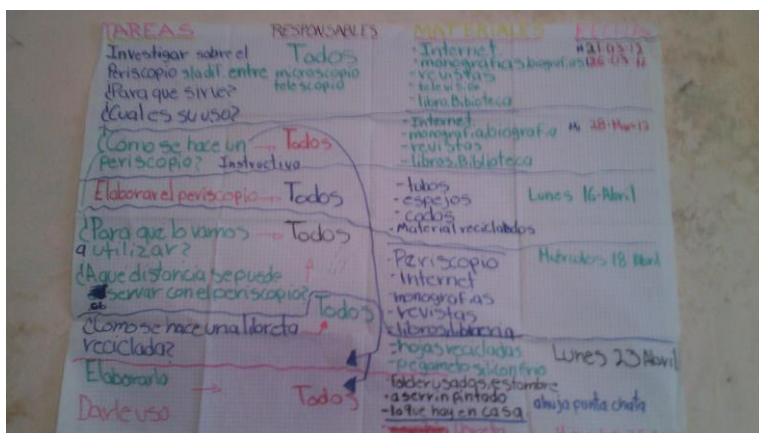 TAREAS RESPONSABLES MATERIALES FECHA
Investigar sobre el Todos
Periscopio sladif. entre microscopio
telescopio
¿Para que sirve?
¿Cual es su uso?
- Internet
- monografias biografias
- revistas
- television
- libro.Biblioteca
¿Como se hace un → Todos
periscopio? Instructivo
- Internet
- monografia.biografia
- revistas
- libros.Biblioteca
28-Mar-12
Elaborar el periscopio → Todos
- tubos
- espejos
- codos
- Material reciclabdos
Lunes 16-Abril
¿Para que lo vamos → Todos
a utilizar?
¿A que distancia se puede
observar con el periscopio? Todos
- Periscopio
- Internet
monografias
- revistas
- libros.libreria
Miércoles 18 Abril
¿Como se hace una libreta
reciclada?
- hojas recicladas
- pegameto silicon frio
Lunes 23 Abril
Elaborarlo → Todos
Darle uso
folder usados, estambre
- aserrin pintado
- lo que hay en casa
ahuja punta chata